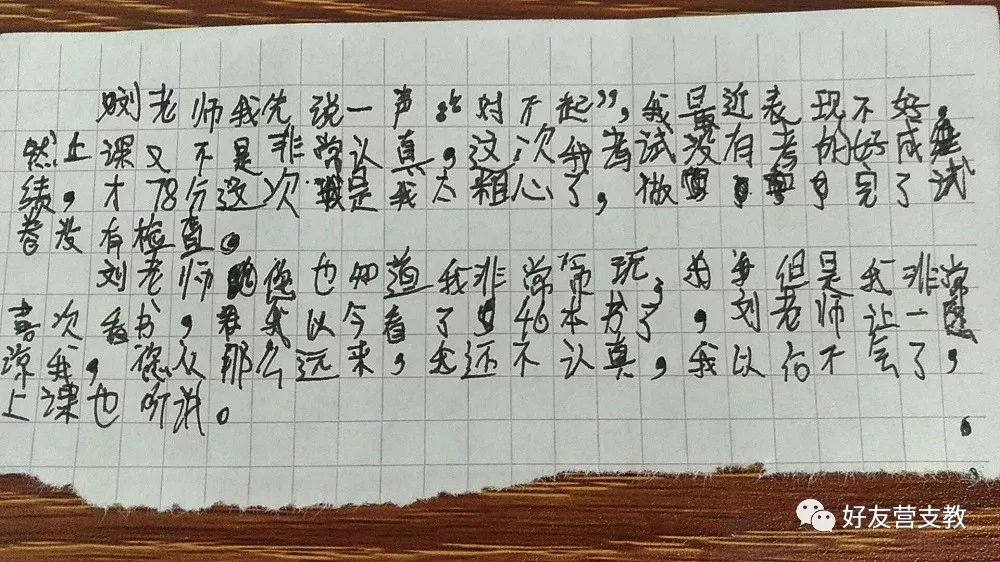 刘老师我先说一声“对不起”,我最近表现不好。
然上课又不是非常认真,这次我考试没有考的好成
绩,才78分这次是我太粗心了,做完了试
卷没有检查。
刘老师您也知道我非常玩,但是我非常
喜次看书,我以今看了46本书了,刘老师让一
谅我,您从那么远来,我还不认真,我以后不会了,
上课也听说。
好友营支教